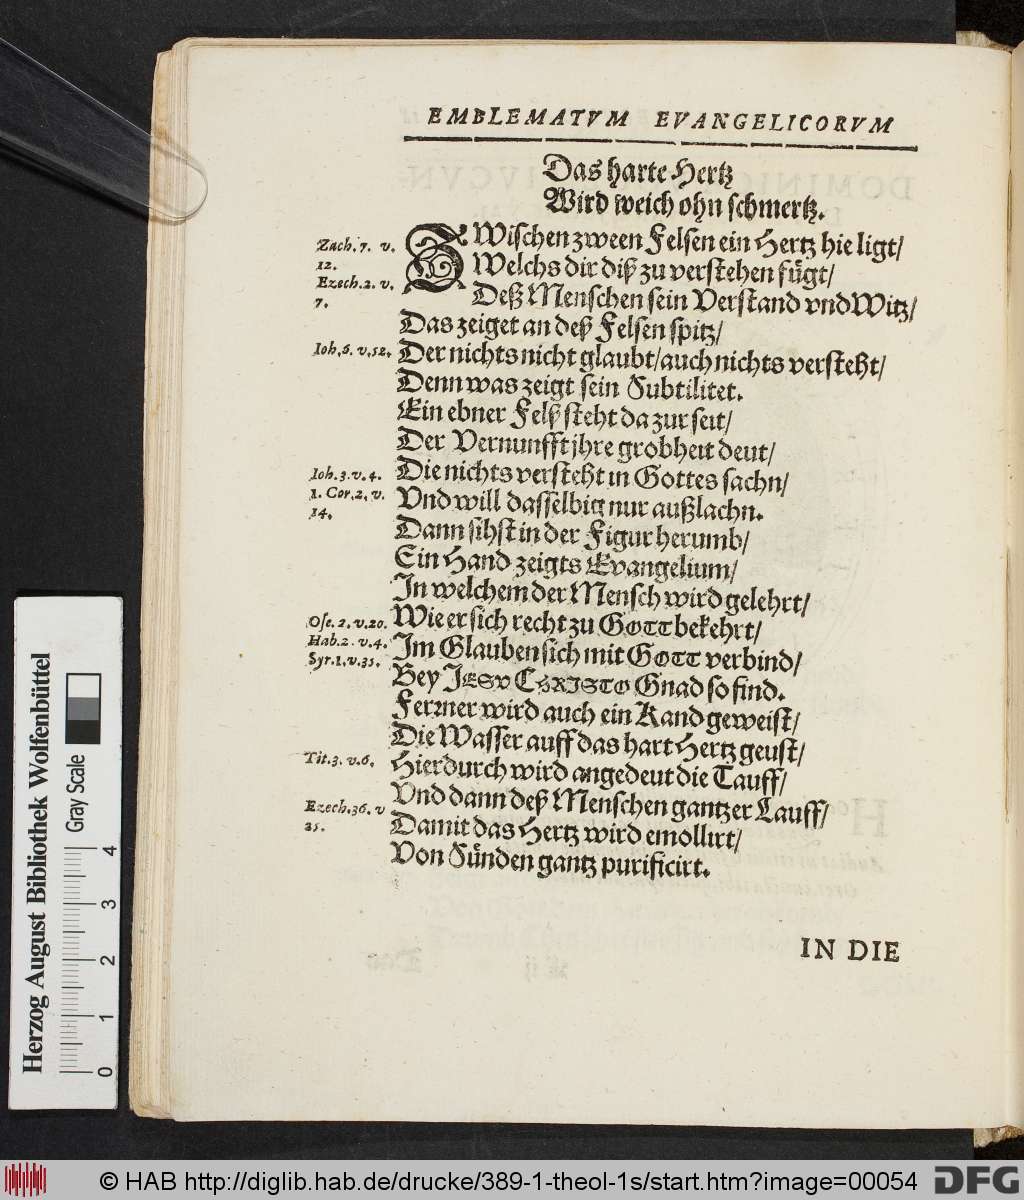 EMBLEMATVM EVANGELICORVM
Das harte Hertz
Wird weich ohn schmertz.
ZWischen zween Felsen ein Hertz hie ligt/
Welchs dir diß zu verstehen fügt/
Deß Menschen sein Verstand vnd Witz/
Das zeiget an deß Felsen spitz/
Der nichts nicht glaubt/auch nichts versteht/
Denn was zeigt sein Subtilitet.
Ein ebner Felß steht da zur seit/
Der Vernunfft jhre grobheit deut/
Die nichts versteht in Gottes sachn/
Vnd will dasselbig nur außlachn.
Dann sihst in der Figur herumb/
Ein Hand zeigts Evangelium/
In welchem der Mensch wird gelehrt/
Wie er sich recht zu GOTT bekehrt/
Im Glauben sich mit GOTT verbind/
Bey JESV CHRISTO Gnad so find.
Ferzner wird auch ein Kand geweist/
Die Wasser auff das hart Hertz geust/
Hierdurch wird angedeut die Tauff/
Vnd dann deß Menschen gantzer Lauff/
Damit das Hertz wird emollirt/
Von Sünden gantz purificirt.
Zach. 7. v.
12.
Ezech. 2. v.
7.
Ioh. 6. v. 52.
Ioh. 3. v. 4.
1. Cor. 2. v.
14.
Ose. 2. v. 20.
Hab. 2. v. 4.
Syr. 1. v. 35.
Tit. 3. v. 6.
Ezech. 36. v
25.
IN DIE
Herzog August Bibliothek Wolfenbüttel
Gray Scale
0 1 2 3 4
© HAB http://diglib.hab.de/drucke/389-1-theol-1s/start.htm?image=00054
DFG